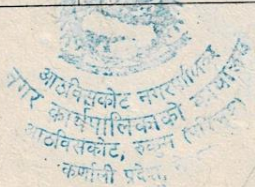 आठबिसकोट नगरपालिका
नगर कार्यपालिकाको
आठबिसकोट, रुकुम
कर्णाली प्रदेश,